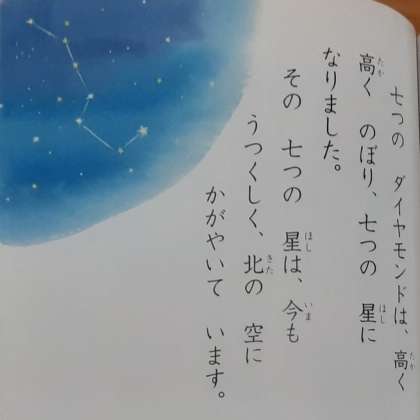 七つの ダイヤモンドは、高く
高く のぼり、七つの 星に
なりました。
その 七つの 星は、今も
うつくしく、北の 空に
かがやいて います。